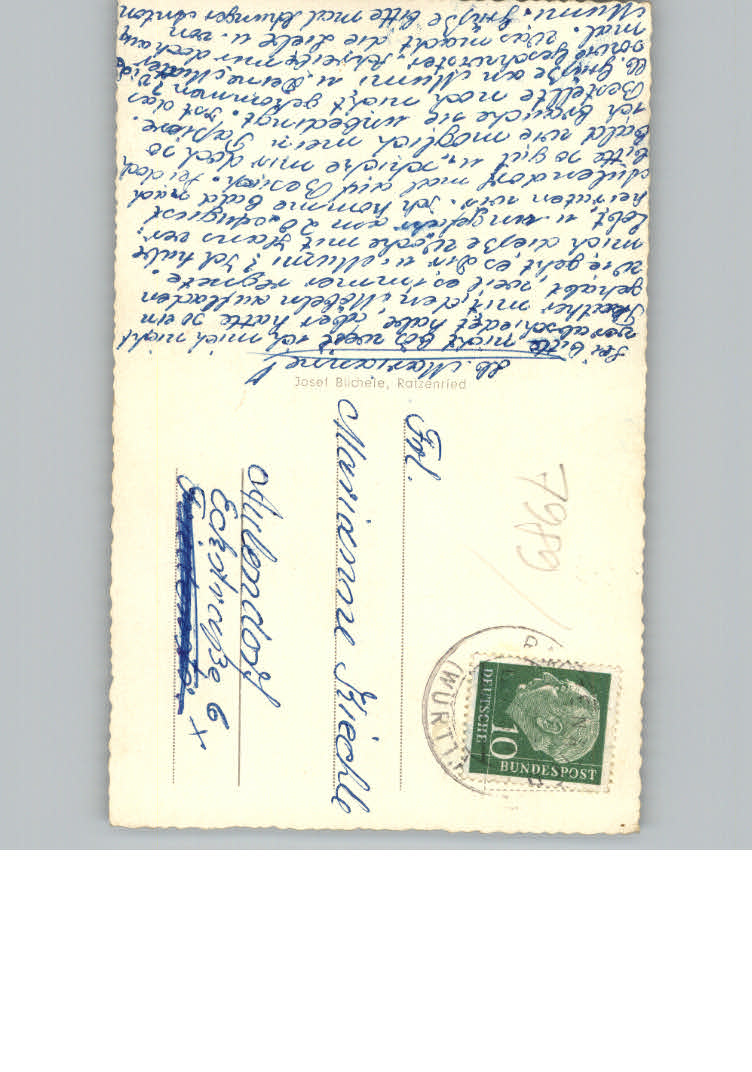 lb. Marianne!
Sei bitte nicht bös weil ich mich nicht
verabschiedet habe, aber hatte so ein
Theater mit den Möbeln aufladen
gehabt, weil es immer regnete.
Wie geht es Dir u. Mumi? Ich habe
mich diese Woche mit Hans ver-
lobt, u. ungefähr am 20. August
heiraten wir. Ich komme bald nach
Aulendorf mal auf Besuch. Sei doch
bitte so gut u. schicke mir doch so
bald wie möglich mein Papiere.
ich brauche sie unbedingt. Ist das
Bestellte noch nicht gekommen?
lb. Grüße an Mumi u. Deine Mutter
sowie Geschwister. Schreibe mir doch auch
mal. Was macht die Liebe u. von
Mumi. Grüße bitte mal Anton
Josef Büchele, Ratzenried
Frl.
Marianne Kiechle
Aulendorf
Eckstraße 6
X
7989
(WÜRTT.)
DEUTSCHE
BUNDESPOST
10